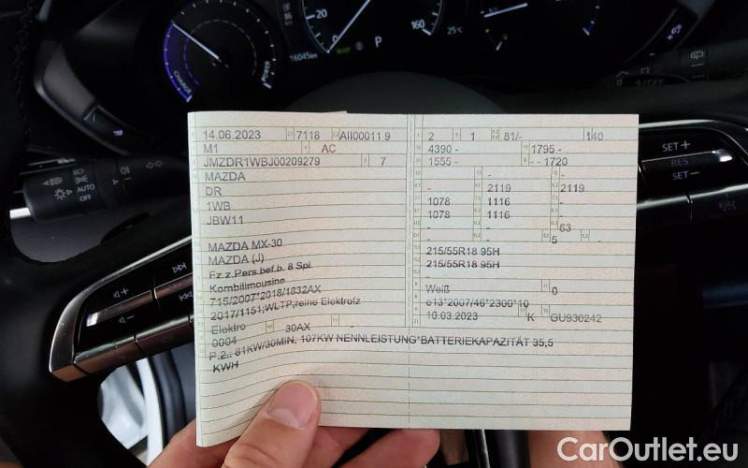 20
160
16045 km
P
25°C
CHARGE
POWER
AUTO
OFF
SET+
RES
SET-
14.06.2023 7118 AII00011 9
M1 AC
JMZDR1WBJ00209279 7
MAZDA
DR
1WB
JBW11
MAZDA MX-30
MAZDA (J)
Fz.z.Pers.bef.b. 8 Spl.
Kombilimousine
715/2007*2018/1832AX
2017/1151;WLTP;reine Elektrofz
Elektro
0004 30AX -
P.2.: 81KW/30MIN, 107KW NENNLEISTUNG*BATTERIEKAPAZITÄT 35,5
KWH
2 1 81/- 140
4390 - 1795 -
1555 - - - 1720
- -
- 2119 2119
1078 1116 -
1078 1116 -
- - 63
- 5 -
215/55R18 95H
215/55R18 95H
-
Weiß 0
e13*2007/46*2300*10
10.03.2023 K GU930242
CarOutlet.eu